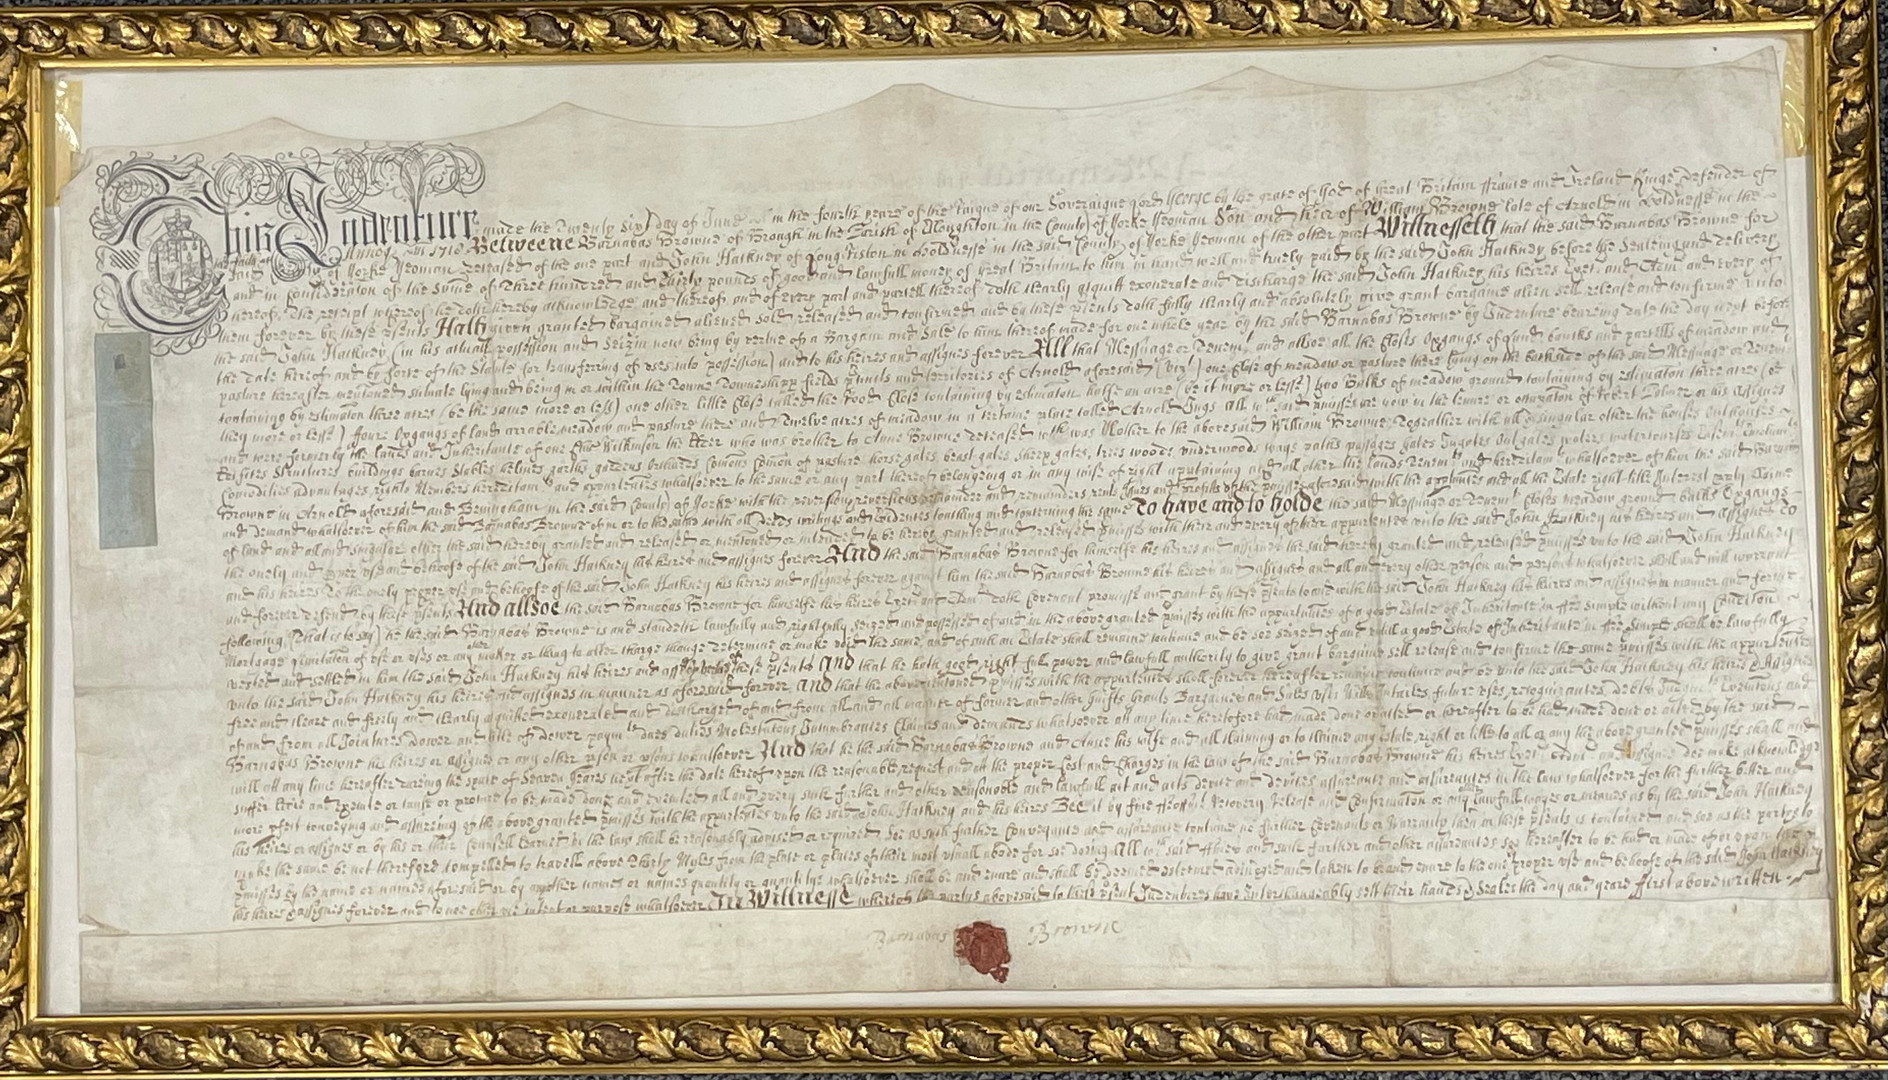 This Indenture made the Twenty Sixt Day of June in the fourth yeare of the Raigne of our Soveraigne Lord George by the grace of God of Great Britain ffrance and Ireland Kinge Defender of
the faith &c Annoq Dm 1718 Betweene Barnabas Browne of Brough in the Parish of in the County of Yorke Yeoman Son and Heir of William Browne late of Arnold in Holdnesse in the
said County of Yorke Yeoman deceased of the one part and John Hackney of Long Riston in Holdnesse in the said County of Yorke Yeoman of the other part Witnesseth that the said Barnabas Browne for
and in consideration of the sume of Three hundred and pounds of good and lawfull money of great Britain to him in hand well and truely paid by the said John Hackney before the Sealing and delivery
hereof, The receipt whereof he doth hereby acknowledge and thereof and of every part and parcell thereof doth clearly acquitt exonerate and discharge the said John Hackney his heires Exec and Adm and every of
them forever by these psents Hath given granted bargained aliened sold released and confirmed and by these psents doth fully clearly and absolutely give grant bargaine alien sell release and confirme unto
the said John Hackney (in his actuall possession and Seizin now being by vertue of a Bargain and Sale to him thereof made for one whole year by the said Barnabas Browne by Indenture beareing date the day next before
the date hereof and by force of the Statute for transferring of uses into possession) and to his heires and assignes forever All that Messuage or Tenemt and allsoe all the Closes Oxgangs of Land banks and parcells of meadow and
pasture hereafter mentioned situate lying and being in or within the Towne Towneshipp fields pcincts and territories of Arnold aforesaid (vizt) one Close of meadow or pasture there lying on the backside of the said Messuage or Tenemt
containing by estimation three acres (be the same more or less) one other little Close called the Close containing by estimation halfe an acre (be it more or lesse) two Bulks of meadow ground containing by estimation three acres (be
they more or lesse) ffoure Oxgangs of land arrable meadow and pasture there and Twelve acres of meadow in a certaine place called Arnold Ings All wch said pmisses are now in the tenure or occupation of Robert or his assignes
and were formerly the lands and Inheritance of one Wilkinson the Elder who was brother to Anne Browne deceased wch was Mother to the abovesaid William Browne Together with all & singular other the houses outhouses
Edifices Structures buildings barnes Stables garths gardens orchards Comons Comon of pasture horsegates beast gates sheep gates, trees woods underwoods ways paths passages gates Ingates outgates waters watercourses Easemts
Comodities advantages rights Members hereditamts and appurtences whatsoever to the same or any part thereof belonging or in any wise of right appertaining and all other the lands Tenemts and hereditamts whatsoever of him the said Barnabas
Browne in Arnold aforesaid and Beningham in the said County of Yorke with the reversion reversions remainder and remainders rents Issues and profits of the pmisses aforesaid with the appurtences and all the Estate right title Interest claime
and demand whatsoever of him the said Barnabas Browne of in or to the same with all deeds writings and Evidences touching and concerning the same To have and to holde the said Messuage or Tenemt Closes meadow ground bulks Oxgangs
of land and all and singular other the said hereby granted and released or mentioned or intended to be hereby granted and released pmisses with their and every of their appurtences unto the said John Hackney his heires and assignes To
the onely and proper use and behoofe of the said John Hackney his heires and assignes forever And the said Barnabas Browne for himselfe his heires and assignes the said hereby granted and released pmisses unto the said John Hackney
and his heires To the onely proper use and behoofe of the said John Hackney his heires and assignes forever against him the said Barnabas Browne his heires and assignes and all and every other person and persons whatsoever shall and will warrant
and forever defend by these psents And allsoe the said Barnabas Browne for himselfe his heires Exec and Adm doth Covenant promise and grant by these psents to and with the said John Hackney his heires and assignes in manner and forme
following (that is to say) he the said Barnabas Browne is and standeth lawfully and rightfully seized and possessed of and in the above granted pmisses with the appurtences of a good Estate of Inheritance in ffee simple without any Condition
Mortgage Limitation of use or uses or any matter or thing to alter change determine or make void the same and of such an Estate shall remaine continue and be soe seized of and untill a good Estate of Inheritance in ffee Simple shall be lawfully
vested and settled in him the said John Hackney his heires and assignes by these psents And that he hath good right full power and lawfull authority to give grant bargaine sell release and confirme the same pmisses with the appurtences
unto the said John Hackney his heires and assignes in manner as aforesaid forever And that the above mentioned pmisses with the appurtences shall forever hereafter remaine continue and be unto the said John Hackney his heires & Assignes
free and cleare and freely and clearly acquitted exonerated and discharged of and from all and all manner of former and other Guifts Grants Bargaines and Sales uses Wills Entailes future uses, recognizances, debts Judgmts Executions and
of and from all Jointures Dower and title of Dower paymts dues duties Molestations Incumbrances Claims and demands whatsoever att any time heretofore had made done or suffered or hereafter to be had made done or suffered by the said
Barnabas Browne his heires or assignes or any other pson or psons whatsoever And that he the said Barnabas Browne and Anne his wife and all claiming or to claime any estate right or title to all or any the above granted pmisses shall and
will att any time hereafter dureing the space of Seaven yeares next after the date hereof upon the reasonable request and att the proper Cost and Charges in the Law of the said his heires Exec Adm and assignes doe make acknowledge
suffer levie and execute or cause or procure to be made done and executed all and every such further and other reasonable and lawfull act and acts devise and devises assurance and assurances in the law whatsoever for the further better and
more pfect conveying and assuring of the above granted pmisses with the appurtences unto the said John Hackney and his heires Bee it by fine Recovery Release and Confirmation or any lawfull wayes or meanes as by the said John Hackney
his heires or assignes or by his or their Councell learned in the law shall be reasonably advised or required soe as such further Conveyance and assurance containe no further Covenants or Warranty then in these psents is contained and soe as the parties to
make the same be not therefore compelled to travell above Myles from the place or places of their most usuall abode for soe doeing All wch said and such further and other assurances soe hereafter to be had or made of or upon the
pmisses by the name or names aforesaid or by any other name or names quantity or quantitys whatsoever shall be and enure and shall be deemed esteemed adjudged and taken to be and enure to the one proper use and behoofe of the said John Hackney
his heires & assignes forever and to noe other use intent or purpose whatsoever In Witnesse whereof the partys abovesaid to these psent Indentures have Interchangeably sett their hands & Seales the day and yeare first above written.
Barnabas Browne